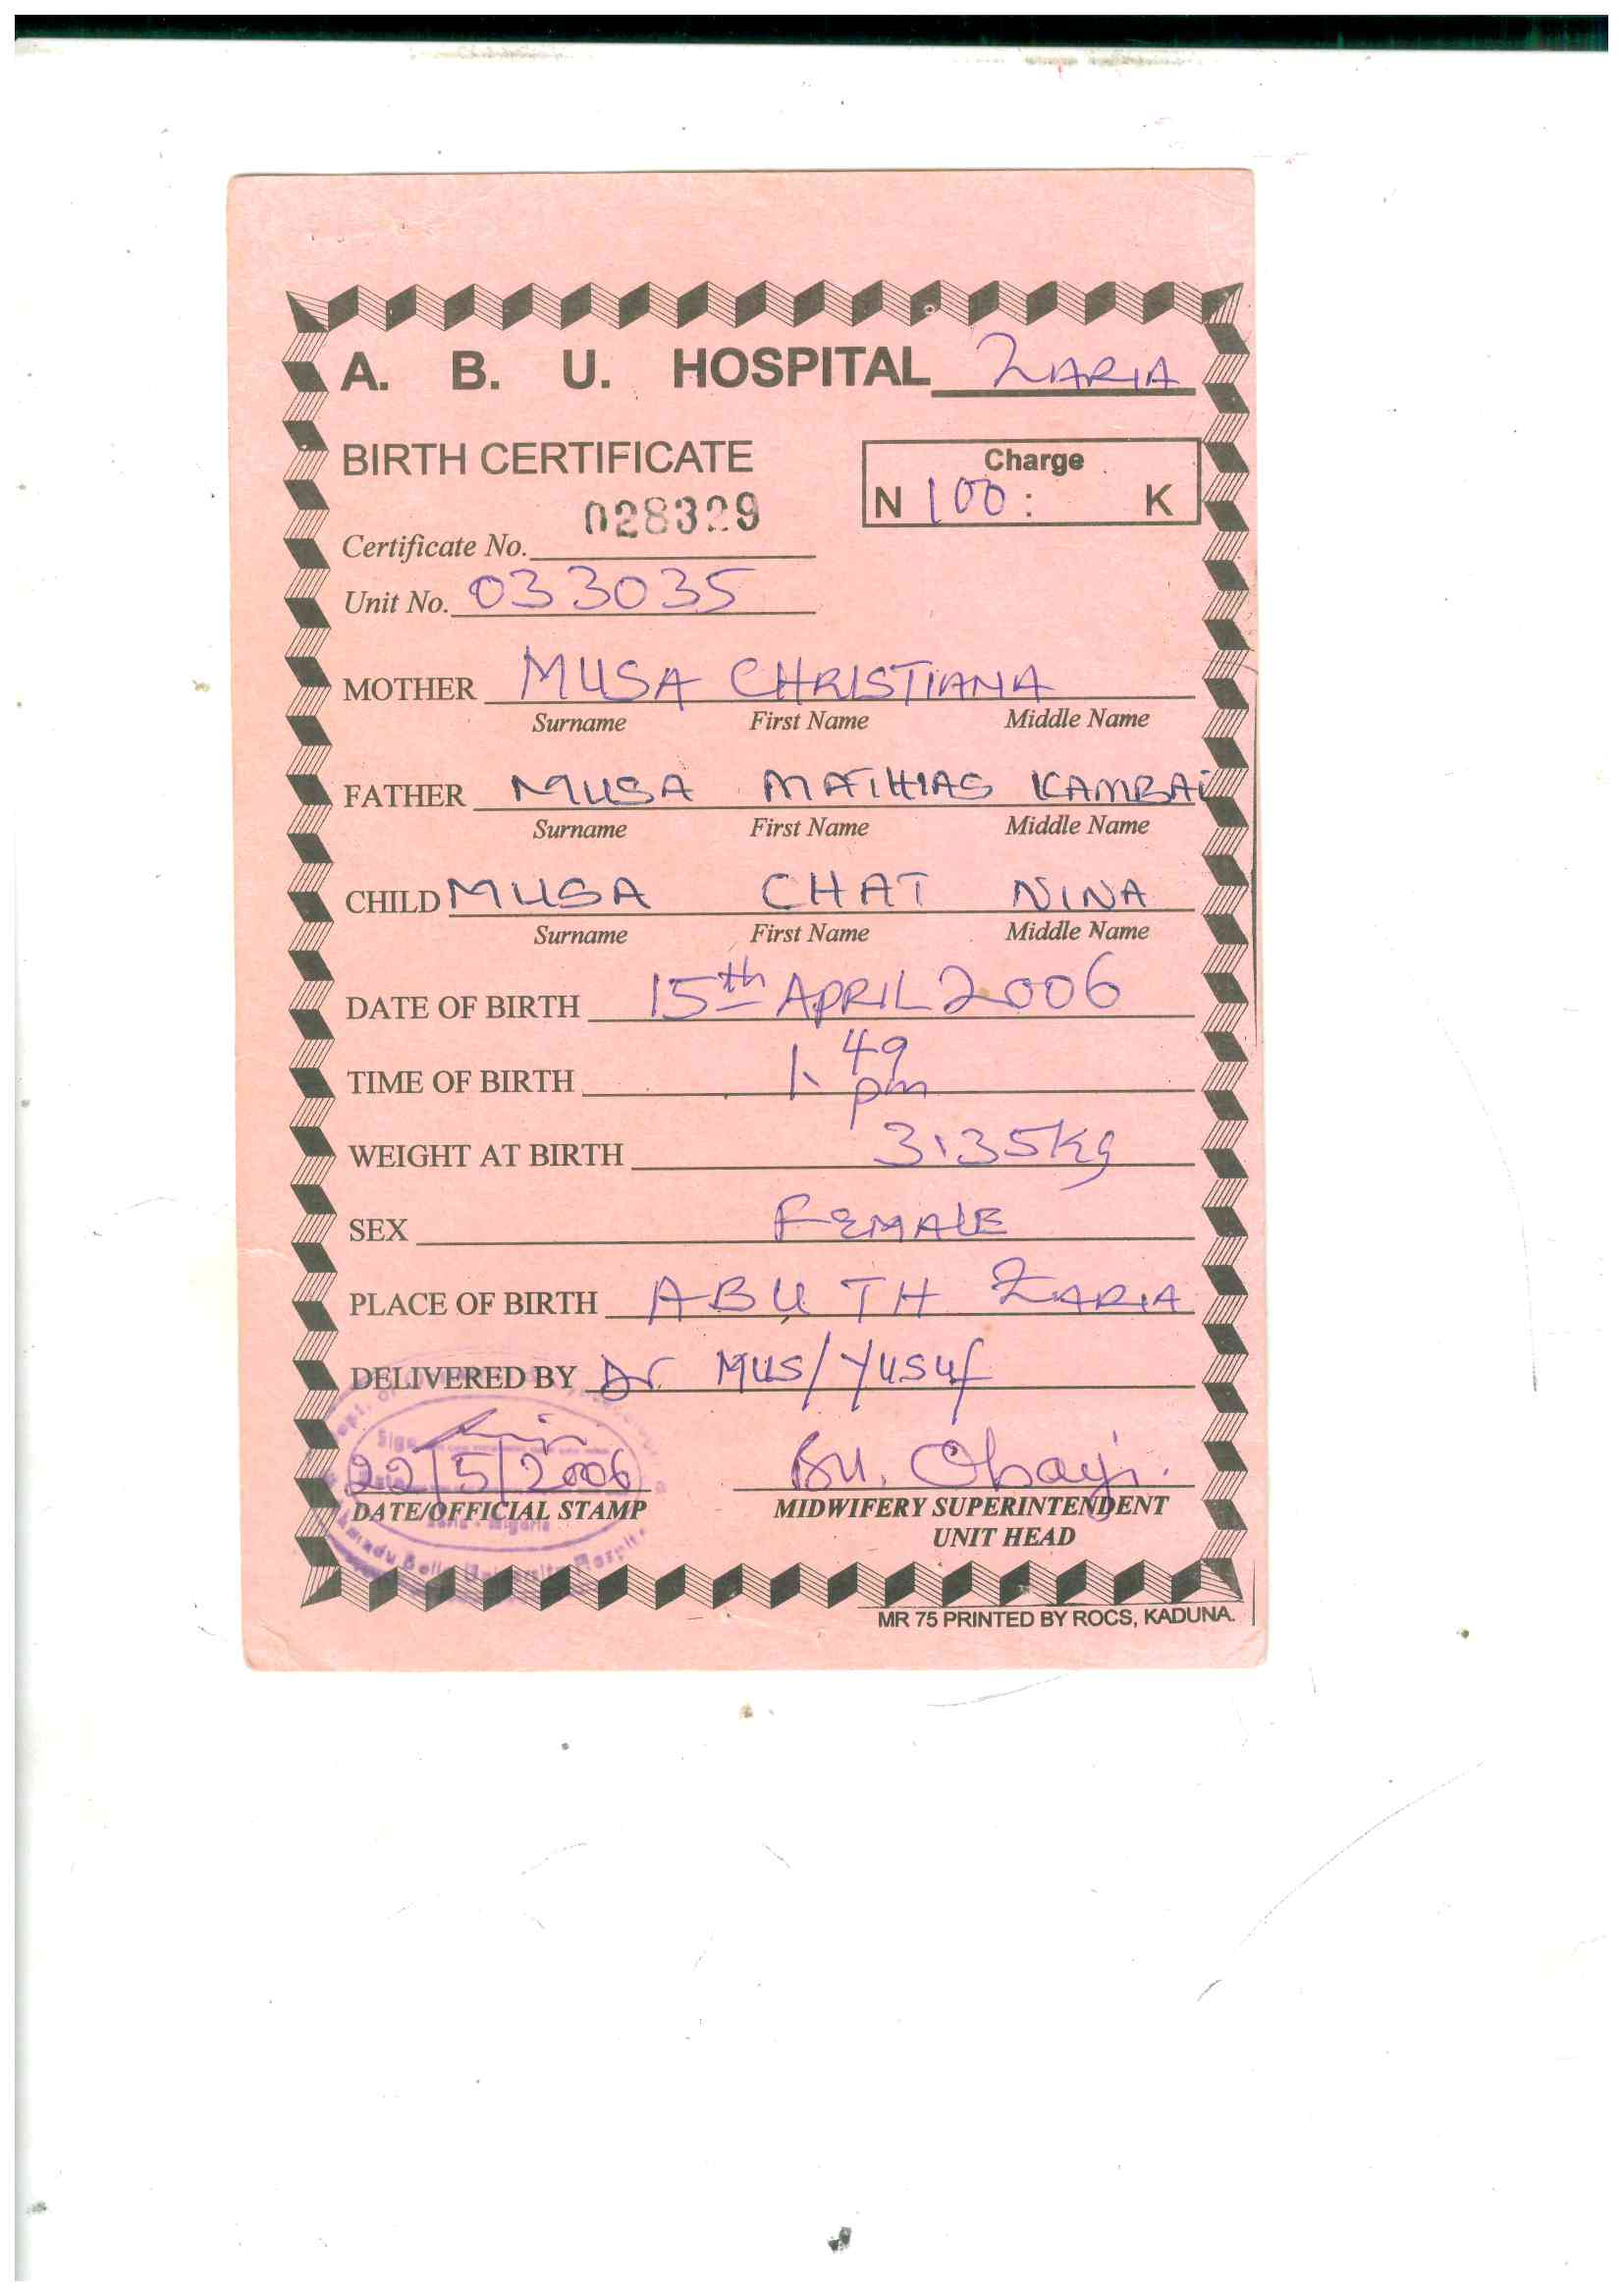 A. B. U. HOSPITAL ZARIA
BIRTH CERTIFICATE
Charge
N 100: K
028329
Certificate No.
Unit No. 033035
MOTHER MUSA CHRISTIANA
Surname First Name Middle Name
FATHER MUSA MATHIAS KAMBAI
Surname First Name Middle Name
CHILD MUSA CHAT NINA
Surname First Name Middle Name
DATE OF BIRTH 15th APRIL 2006
TIME OF BIRTH 1. 49 pm
WEIGHT AT BIRTH 3.35kg
SEX FEMALE
PLACE OF BIRTH ABU TH ZARIA
DELIVERED BY Dr MUS/YUSUF
Sign
22/5/2006
DATE/OFFICIAL STAMP
Obayi.
MIDWIFERY SUPERINTENDENT
UNIT HEAD
MR 75 PRINTED BY ROCS, KADUNA.